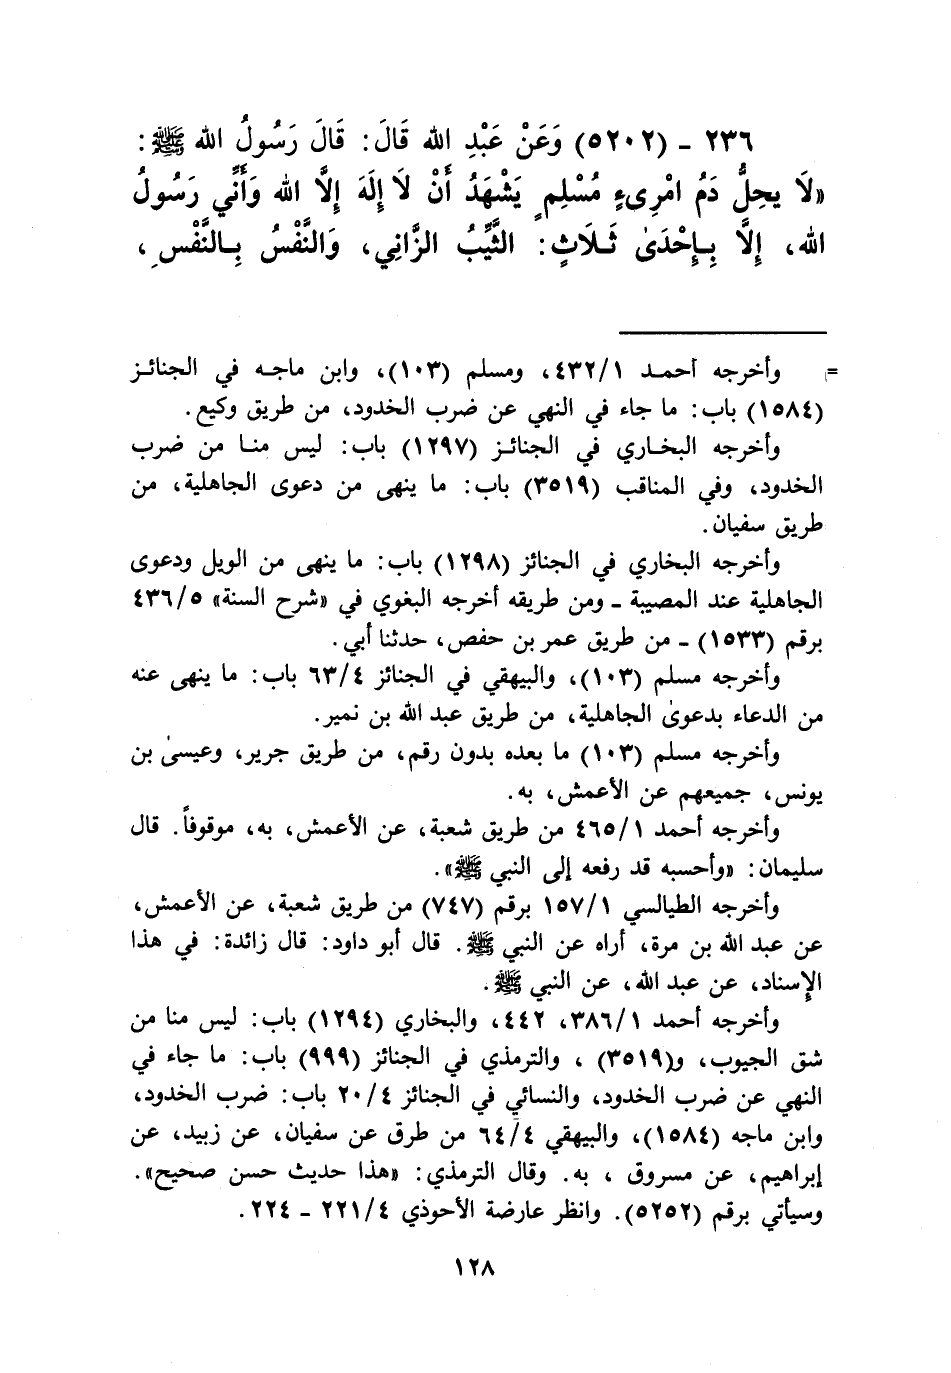 ٢٣٦ ـ (٥٢٠٢) وَعَنْ عَبْدِ الله قَالَ: قَالَ رَسُولُ الله ﷺ:
«لَا يحِلُّ دَمُ امْرِىءٍ مُسْلِمٍ يَشْهَدُ أَنْ لَا إِلَهَ إِلَّا الله وَأَنِّي رَسُولُ
الله، إِلَّا بِـإِحْدَىٰ ثَـلَاثٍ: الثَّيِّبُ الزَّانِي، وَالنَّفْسُ بِـالنَّفْسِ،
= وأخرجه أحمـد ٤٣٢/١، ومسلم (١٠٣)، وابن ماجـه في الجنائـز
(١٥٨٤) باب: ما جاء في النهي عن ضرب الخدود، من طريق وكيع.
وأخرجه البخـاري في الجنائـز (١٢٩٧) باب: ليس منـا من ضرب
الخدود، وفي المناقب (٣٥١٩) باب: ما ينهى من دعوى الجاهلية، من
طريق سفيان.
وأخرجه البخاري في الجنائز (١٢٩٨) باب: ما ينهى من الويل ودعوى
الجاهلية عند المصيبة ـ ومن طريقه أخرجه البغوي في «شرح السنة» ٤٣٦/٥
برقم (١٥٣٣) ـ من طريق عمر بن حفص، حدثنا أبي.
وأخرجه مسلم (١٠٣)، والبيهقي في الجنائز ٦٣/٤ باب: ما ينهى عنه
من الدعاء بدعوىٰ الجاهلية، من طريق عبد الله بن نمير.
وأخرجه مسلم (١٠٣) ما بعده بدون رقم، من طريق جرير، وعيسىٰ بن
يونس، جميعهم عن الأعمش، به.
وأخرجه أحمد ٤٦٥/١ من طريق شعبة، عن الأعمش، به، موقوفاً. قال
سليمان: «وأحسبه قد رفعه إلى النبي ﷺ».
وأخرجه الطيالسي ١٥٧/١ برقم (٧٤٧) من طريق شعبة، عن الأعمش،
عن عبد الله بن مرة، أراه عن النبي ﷺ. قال أبو داود: قال زائدة: في هذا
الإسناد، عن عبد الله، عن النبي ﷺ.
وأخرجه أحمد ٣٨٦/١، ٤٤٢، والبخاري (١٢٩٤) باب: ليس منا من
شق الجيوب، و(٣٥١٩) ، والترمذي في الجنائز (٩٩٩) باب: ما جاء في
النهي عن ضرب الخدود، والنسائي في الجنائز ٢٠/٤ باب: ضرب الخدود،
وابن ماجه (١٥٨٤)، والبيهقي ٦٤/٤ من طرق عن سفيان، عن زبيد، عن
إبراهيم، عن مسروق ، به. وقال الترمذي: «هذا حديث حسن صحيح».
وسيأتي برقم (٥٢٥٢). وانظر عارضة الأحوذي ٢٢١/٤ ـ ٢٢٤.
١٢٨